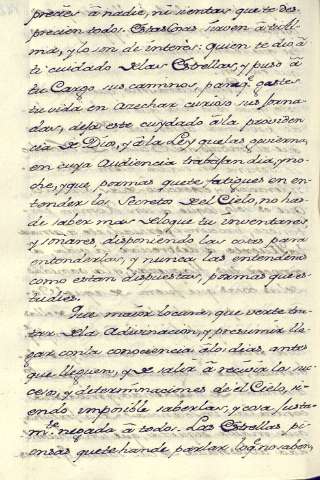 precies à nadie, ni sientas que te des-
precien todos. Estas cosas sirven à tu al-
ma, y lo son de interès: quien te diò à
ti cuidado de las Estrellas, y puso à
tu Cargo sus caminos, para q.e gastes
tu vida en acechar curioso sus jorna-
das, deja este cuydado à la providen
cia de Dios, y à la Ley que las govierna,
en cuya Audiencia trabajan dia, y no-
che, y que por mas que te fatigues en en-
tender los Secretos del Cielo, no has
de saber mas de lo que tu inventares,
y soñares, disponiendo las cosas para
entenderlas, y nunca las entenderas
como estan dispuestas, por mas que es-
tudies.
Que mayor locura, que verte tra-
tar de la Adivinacion, y presumir lle-
gar con la conociencia à los dias, antes
que lleguen, y de salir à recivir los su-
cesos, y determinaciones de el Cielo, si-
endo imposible saberlas, y cosa justa-
m.te negada à todos. Las Estrellas pi-
ensas que te han de parlar, lo q.e no saben,